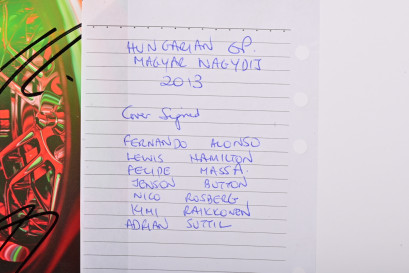 HUNGARIAN GP.
MAGYAR NAGYDIJ
2013
Cover Signed
FERNANDO ALONSO
LEWIS HAMILTON
FELIPE MASSA.
JENSON BUTTON
NICO ROSBERG,
KIMI RAIKKONEN
ADRIAN SUTTIL